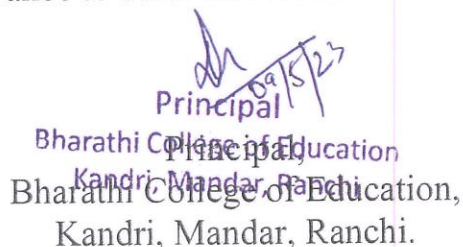 09/5/23
Principal
Bharathi College of Education
Kandri, Mandar, Ranchi
Principal,
Bharathi College of Education,
Kandri, Mandar, Ranchi.